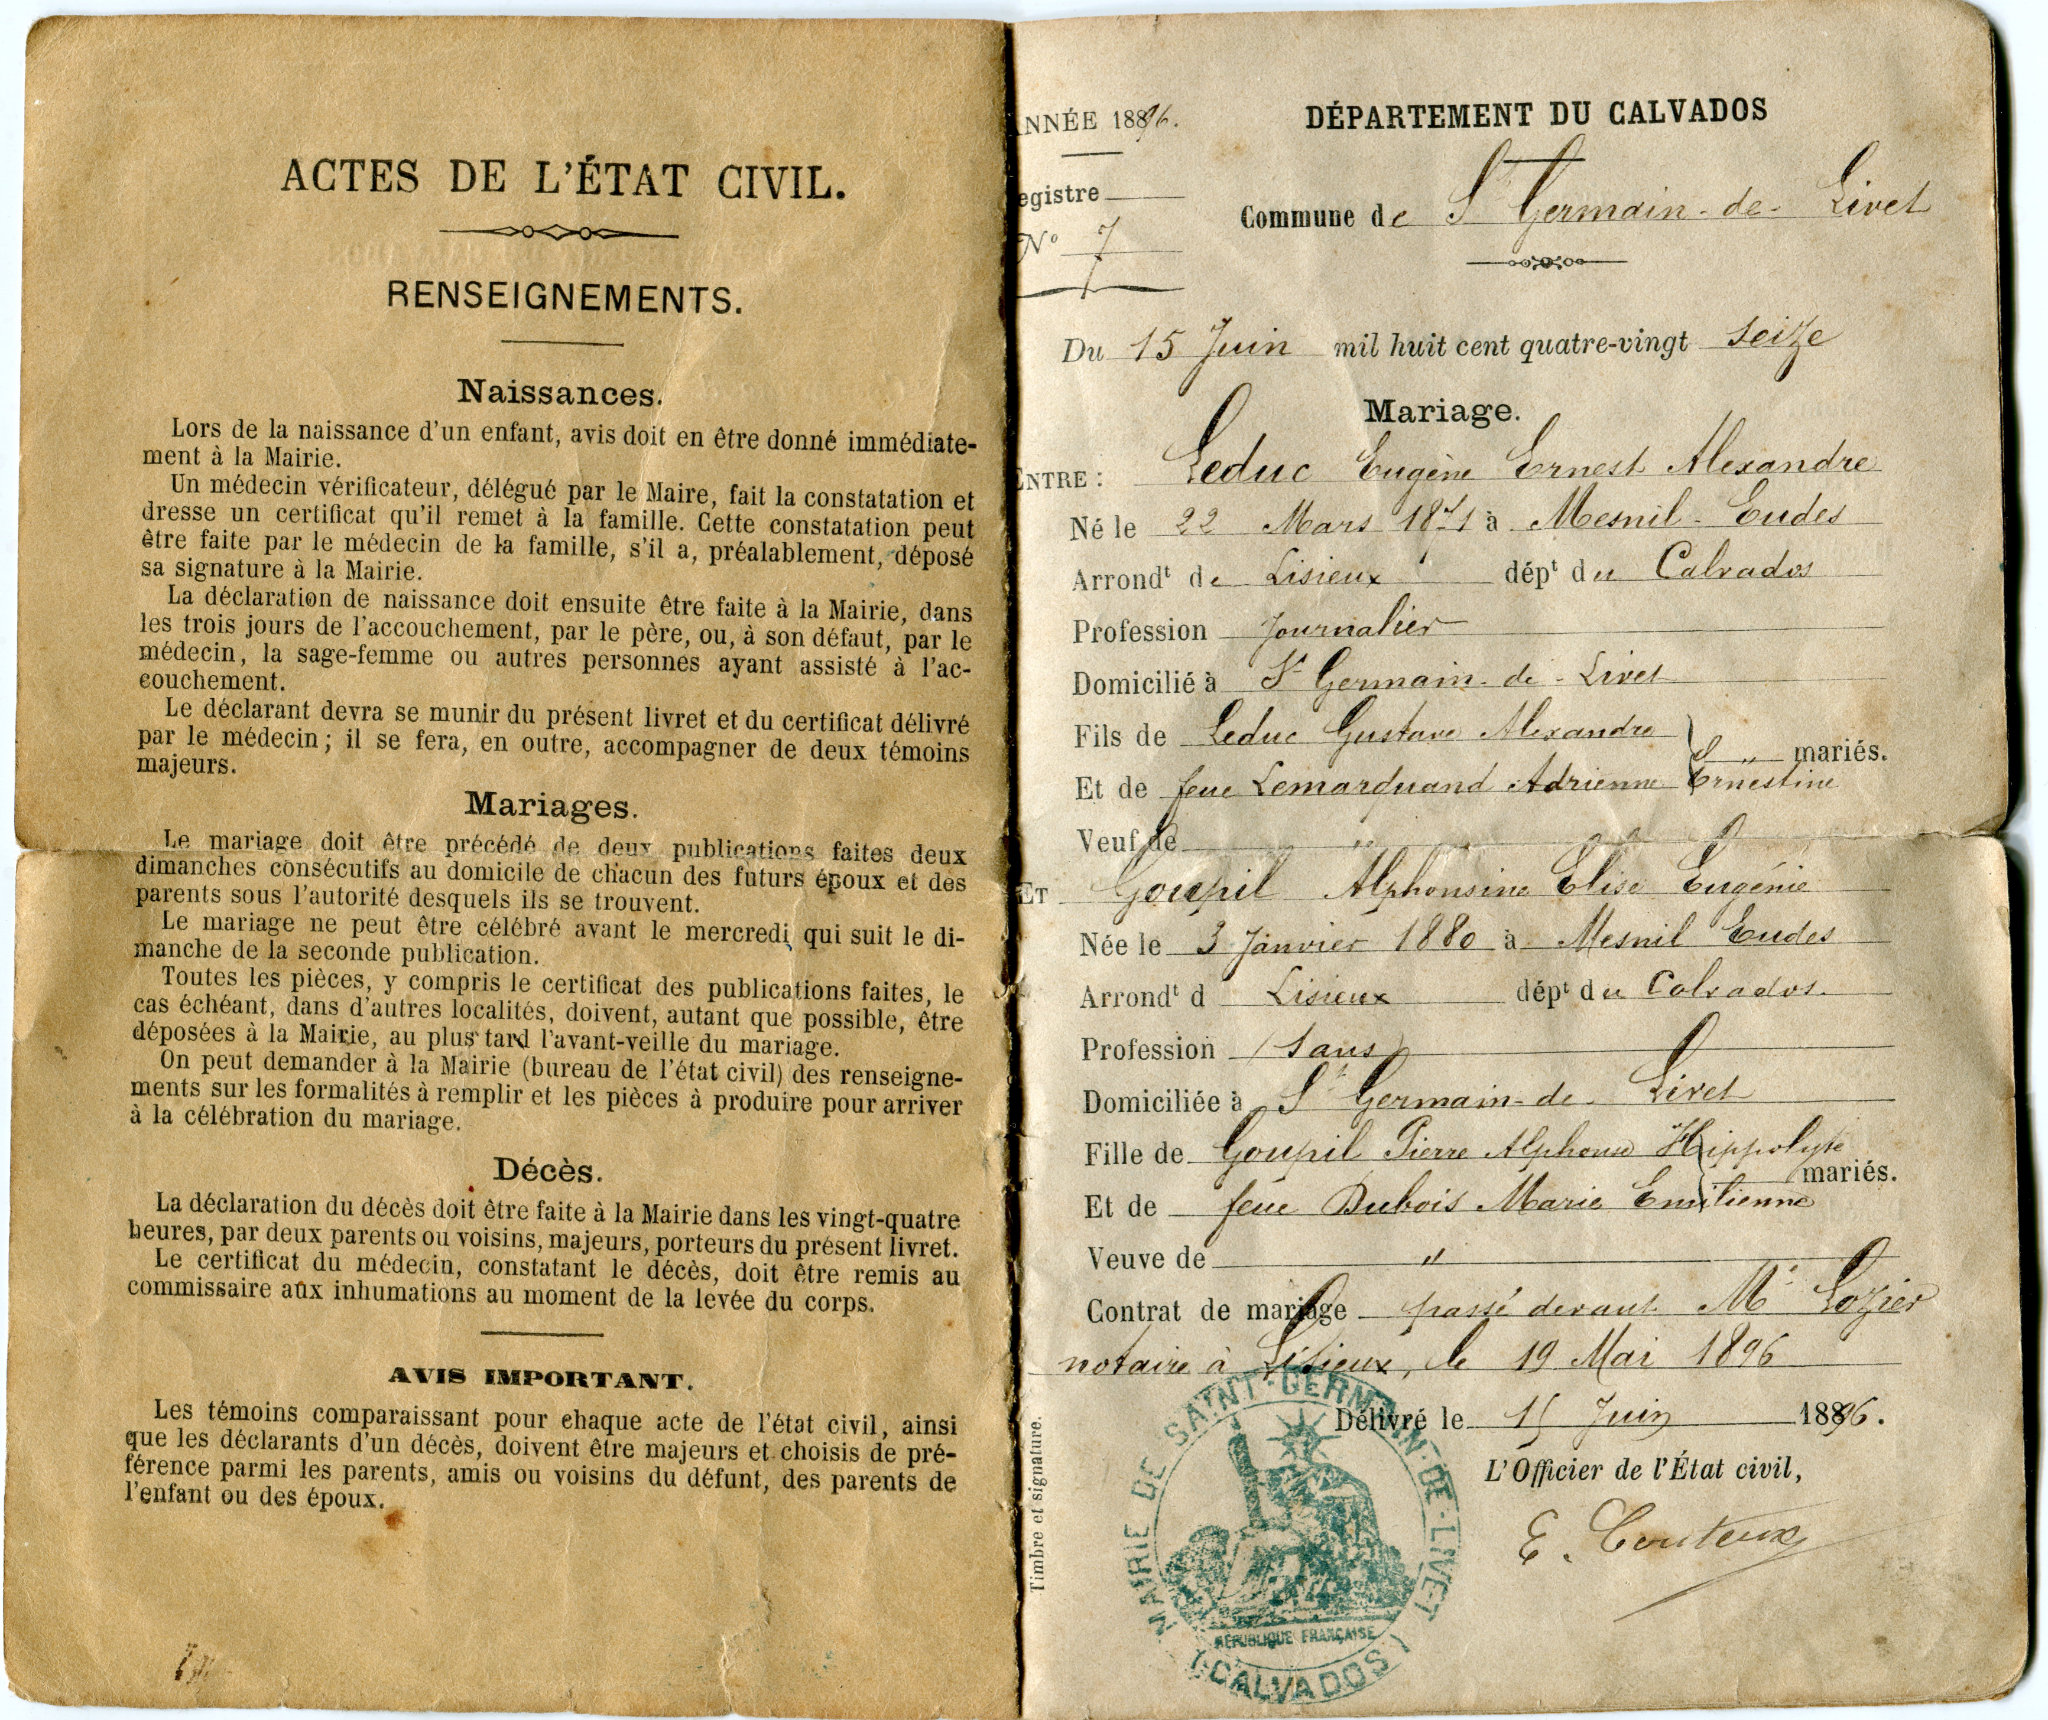 ACTES DE L'ÉTAT CIVIL.
RENSEIGNEMENTS.
Naissances.
Lors de la naissance d'un enfant, avis doit en être donné immédiate-
ment à la Mairie.
Un médecin vérificateur, délégué par le Maire, fait la constatation et
dresse un certificat qu'il remet à la famille. Cette constatation peut
être faite par le médecin de la famille, s'il a, préalablement, déposé
sa signature à la Mairie.
La déclaration de naissance doit ensuite être faite à la Mairie, dans
les trois jours de l'accouchement, par le père, ou, à son défaut, par le
médecin, la sage-femme ou autres personnes ayant assisté à l'ac-
couchement.
Le déclarant devra se munir du présent livret et du certificat délivré
par le médecin; il se fera, en outre, accompagner de deux témoins
majeurs.
Mariages.
Le mariage doit être précédé de deux publications faites deux
dimanches consécutifs au domicile de chacun des futurs époux et des
parents sous l'autorité desquels ils se trouvent.
Le mariage ne peut être célébré avant le mercredi qui suit le di-
manche de la seconde publication.
Toutes les pièces, y compris le certificat des publications faites, le
cas échéant, dans d'autres localités, doivent, autant que possible, être
déposées à la Mairie, au plus tard l'avant-veille du mariage.
On peut demander à la Mairie (bureau de l'état civil) des renseigne-
ments sur les formalités à remplir et les pièces à produire pour arriver
à la célébration du mariage.
Décès.
La déclaration du décès doit être faite à la Mairie dans les vingt-quatre
heures, par deux parents ou voisins, majeurs, porteurs du présent livret.
Le certificat du médecin, constatant le décès, doit être remis au
commissaire aux inhumations au moment de la levée du corps.
AVIS IMPORTANT.
Les témoins comparaissant pour chaque acte de l'état civil, ainsi
que les déclarants d'un décès, doivent être majeurs et choisis de pré-
férence parmi les parents, amis ou voisins du défunt, des parents de
l'enfant ou des époux.
ANNÉE 1896.
egistre
N° 7
DÉPARTEMENT DU CALVADOS
Commune de St Germain-de-Livet
Du 15 Juin mil huit cent quatre-vingt seize
Mariage.
ENTRE : Leduc Eugène Ernest Alexandre
Né le 22 Mars à Mesnil-Eudes
Arrondt de Lisieux dépt du Calvados
Profession Journalier
Domicilié à St Germain-de-Livet
Fils de Leduc Gustave Alexandre
mariés.
Et de feue Lemarquand Adrienne Ernestine
Veuf de "
ET Goupil Alphonsine Elise Eugénie
Née le 3 Janvier 1880 à Mesnil Eudes
Arrondt d Lisieux dépt du Calvados.
Profession (sans)
Domiciliée à St Germain-de-Livet
Fille de Goupil Pierre Alphonse Hippolyte
mariés.
Et de feue Dubois Marie Emilienne
Veuve de "
Contrat de mariage passé devant Me Lozier
notaire à Lisieux, le 19 Mai 1896
Délivré le 15 Juin 1896.
L'Officier de l'État civil,
E. Couteux
Timbre et signature.
MAIRIE DE SAINT-GERMAIN-DE-LIVET
RÉPUBLIQUE FRANÇAISE
(CALVADOS)